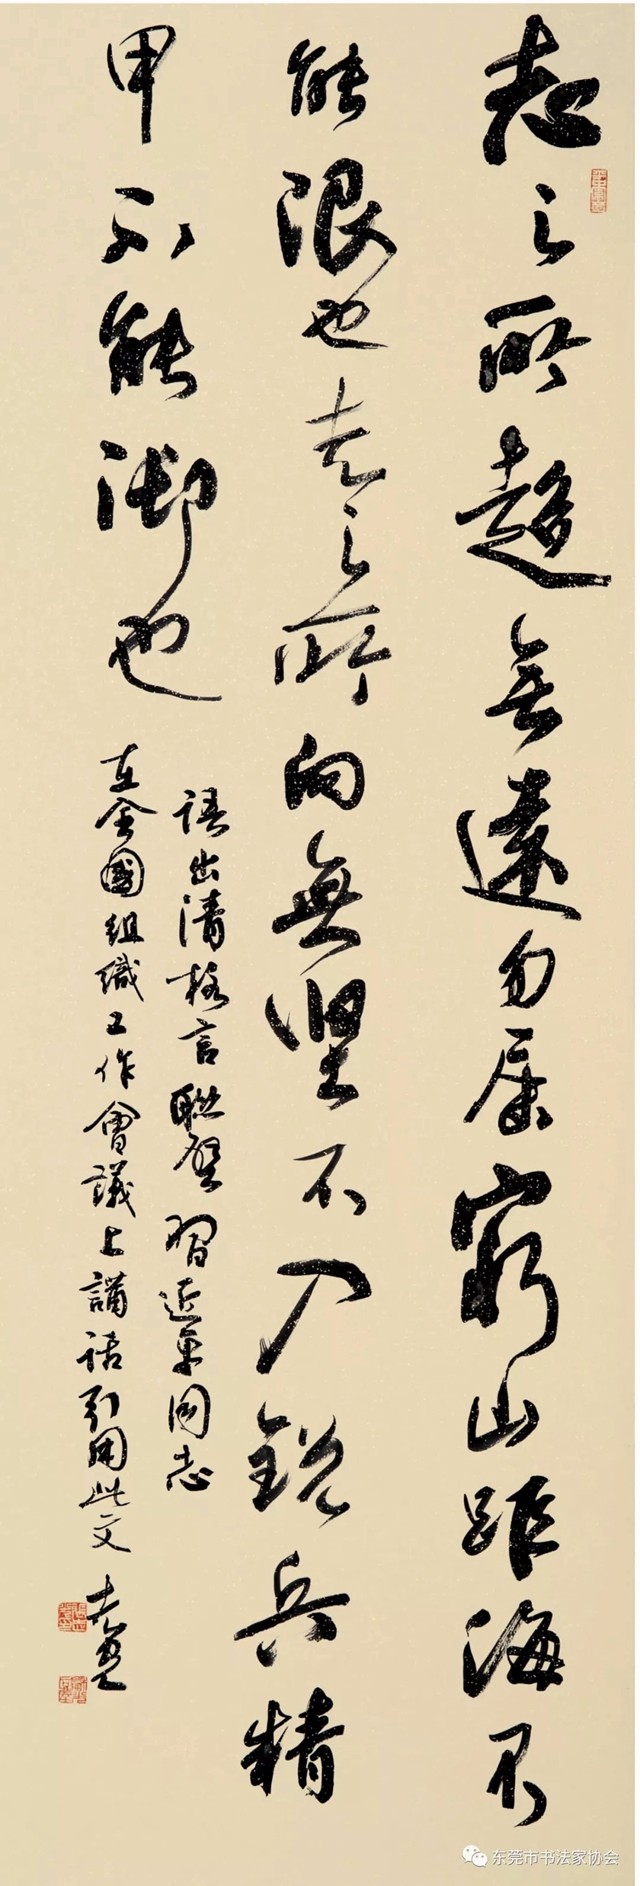 志之所趋无遠勿届窮山距海不
能限也志之所向無坚不入鋭兵精
甲不能御也
语出清格言联璧習近平同志
在全國组織工作會議上講话引用此文
东莞市书法家协会